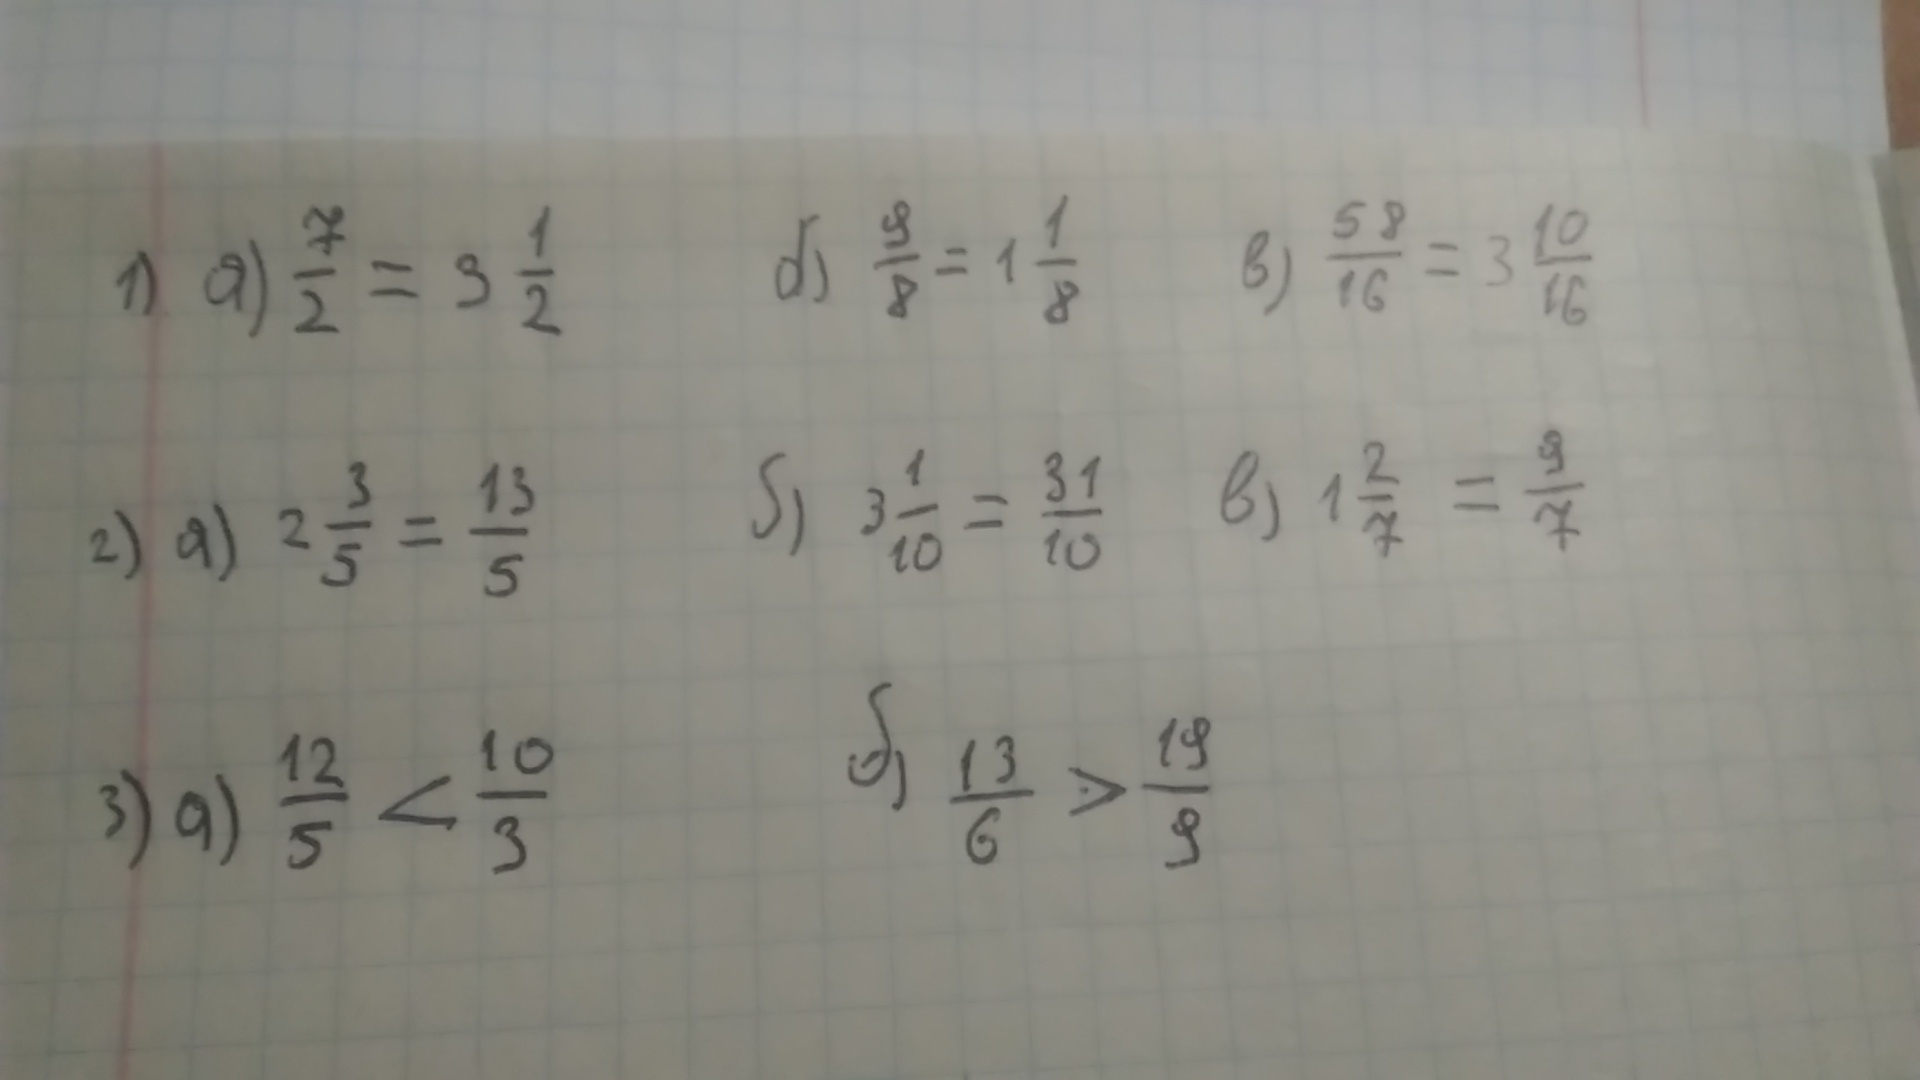 1) а) 7/2 = 3 1/2 б) 9/8 = 1 1/8 в) 58/16 = 3 10/16
2) а) 2 3/5 = 13/5 б) 3 1/10 = 31/10 в) 1 2/7 = 9/7
3) а) 12/5 < 10/3 б) 13/6 > 19/9